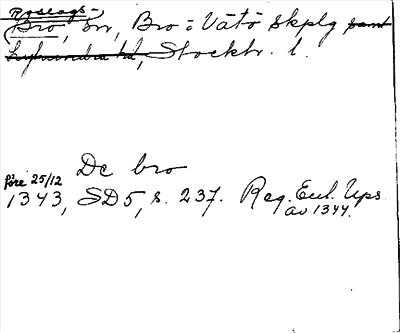 Roslags-
Bro, sn, Bro o Vätö skplg samt
Lyhundra hd, Stockh. l.
De bro
före 25/12
1343, SD5, s. 237. Reg. Eccl. Ups.
av 1344.